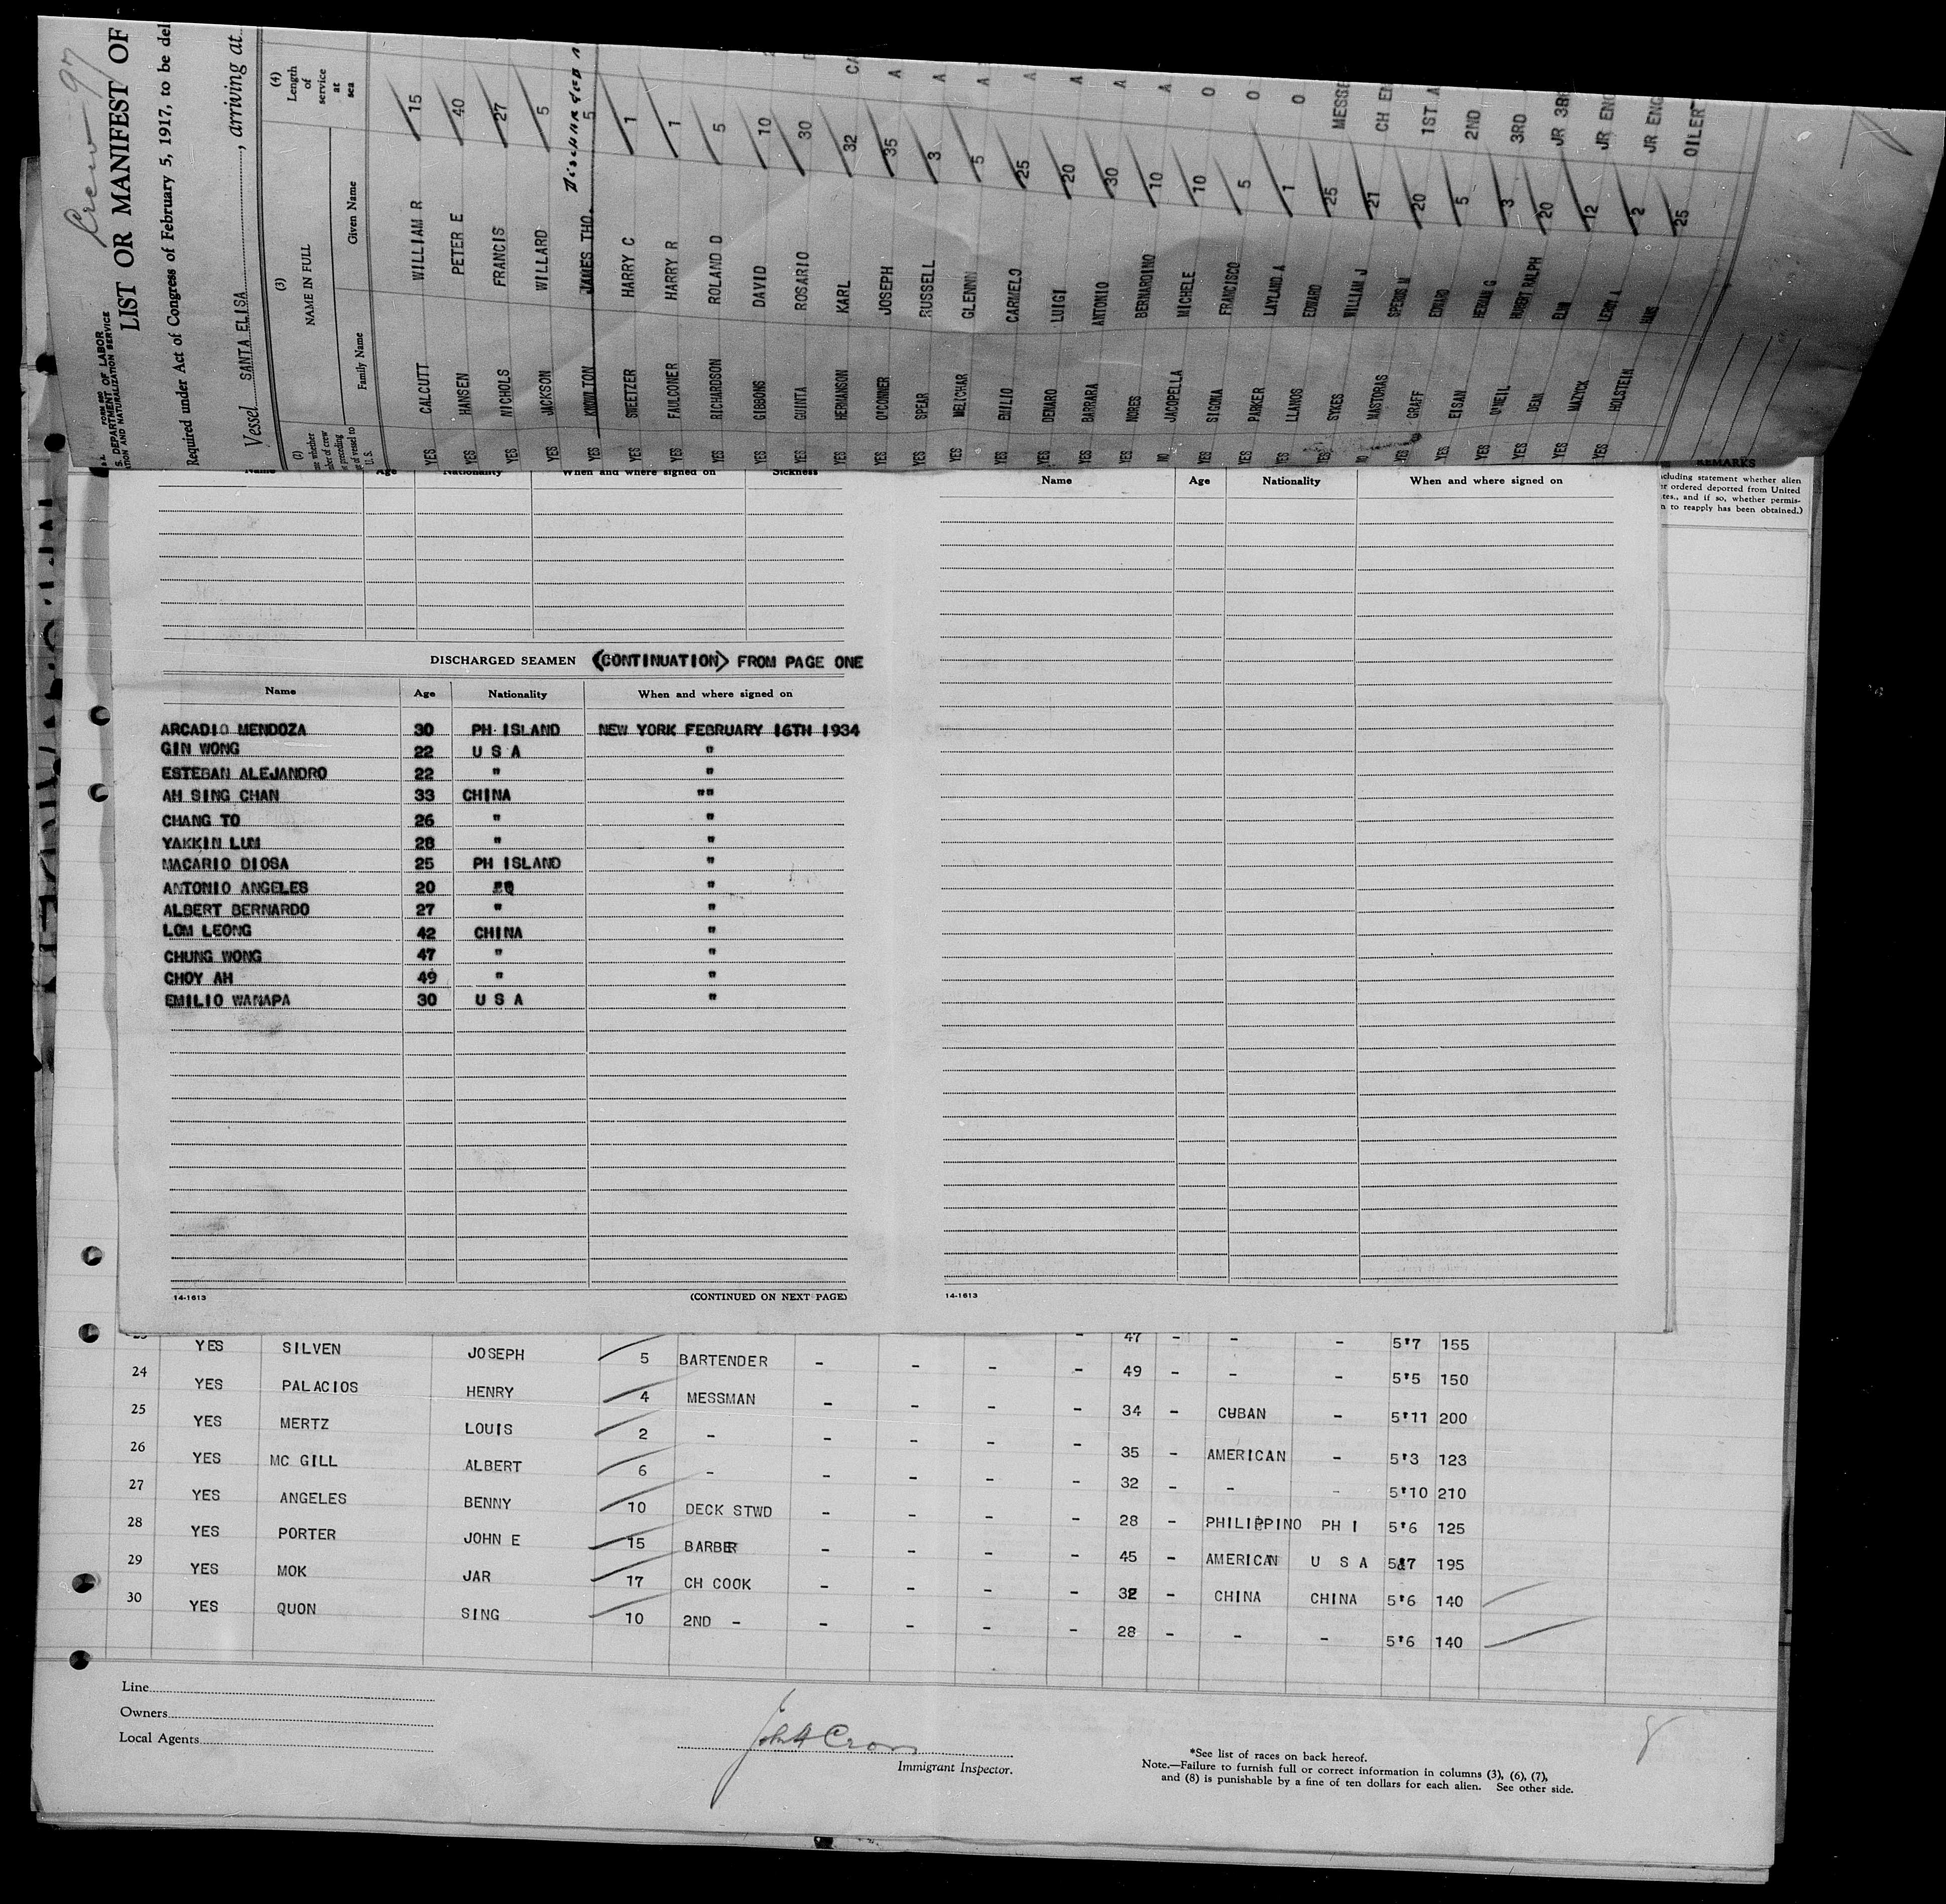 Crew - 97
FORM 680
U. S. DEPARTMENT OF LABOR
IMMIGRATION AND NATURALIZATION SERVICE
LIST OR MANIFEST OF
Required under Act of Congress of February 5, 1917, to be del
Vessel SANTA ELISA, arriving at
(2) (3) (4)
NAME IN FULL
Length of service at sea
Family Name Given Name
YES CALCUTT WILLIAM R 15
YES HANSEN PETER E 40
YES NICHOLS FRANCIS 27
YES JACKSON WILLARD 5
YES KNOWLTON JAMES THO. 5 Discharged
YES SWEETZER HARRY C 1
YES FAULCONER HARRY R 1
YES RICHARDSON ROLAND D 5
YES GIBBONS DAVID 10
YES QUINTA ROSARIO 30
YES HERMANSON KARL 32 CA
YES O'CONNER JOSEPH 35 A
YES SPEAR RUSSELL 3 A
YES MELICHAR GLENNN 5 A
YES EMILIO CARMELO 25 A
YES DENARO LUIGI 20 A
YES BARRARA ANTONIO 30 A
YES NORES BERNARDINO 10 A
NO JACOPELLA MICHELE 10 O
YES SIGONA FRANCISCO 5 O
YES PARKER LAYLAND A 1 O
YES LLANOS EDWARD 25 MESSE
YES SYKES WILLIAM J 21 CH EN
NO MASTORAS SPEROS M 20 1ST A
YES GRAFF EDWARD 5 2ND
YES EISAN HERMAN G 3 3RD
YES O'NEIL HUBERT RALPH 20 JR 3R
YES DEAL ELMA 12 JR ENG
YES MAZYCK LEROY A 2 JR ENG
YES HOLSTEIN HANS 25 OILER
Name Age Nationality When and where signed on Sickness
Name Age Nationality When and where signed on
REMARKS
cluding statement whether alien
r ordered deported from United
tes., and if so, whether permis-
n to reapply has been obtained.)
DISCHARGED SEAMEN (CONTINUATION) FROM PAGE ONE
Name Age Nationality When and where signed on
ARCADIO MENDOZA 30 PH. ISLAND NEW YORK FEBRUARY 16TH 1934
GIN WONG 22 U S A "
ESTEBAN ALEJANDRO 22 " "
AH SING CHAN 33 CHINA ""
CHANG TO 26 " "
YAKKIN LUM 28 " "
MACARIO DIOSA 25 PH ISLAND "
ANTONIO ANGELES 20 "
ALBERT BERNARDO 27 " "
LOM LEONG 42 CHINA "
CHUNG WONG 47 " "
CHOY AH 49 " "
EMILIO WANAPA 30 U S A "
14-1613 (CONTINUED ON NEXT PAGE)
14-1613
YES SILVEN JOSEPH 5 BARTENDER - - - - 47 - - - 5'7 155
24 YES PALACIOS HENRY 4 MESSMAN - - - - 49 - - - 5'5 150
25 YES MERTZ LOUIS 2 - - - - - 34 - CUBAN - 5'11 200
26 YES MC GILL ALBERT 6 - - - - - 35 - AMERICAN - 5'3 123
27 YES ANGELES BENNY 10 DECK STWD - - - - 32 - - - 5'10 210
28 YES PORTER JOHN E 15 BARBER - - - - 28 - PHILIPPINO PH I 5'6 125
29 YES MOK JAR 17 CH COOK - - - - 45 - AMERICAN U S A 5'7 195
30 YES QUON SING 10 2ND - - - - - 32 - CHINA CHINA 5'6 140
28 - - - 5'6 140
Line
Owners
Local Agents
John A Cron
Immigrant Inspector.
*See list of races on back hereof.
Note.—Failure to furnish full or correct information in columns (3), (6), (7),
and (8) is punishable by a fine of ten dollars for each alien. See other side.
8